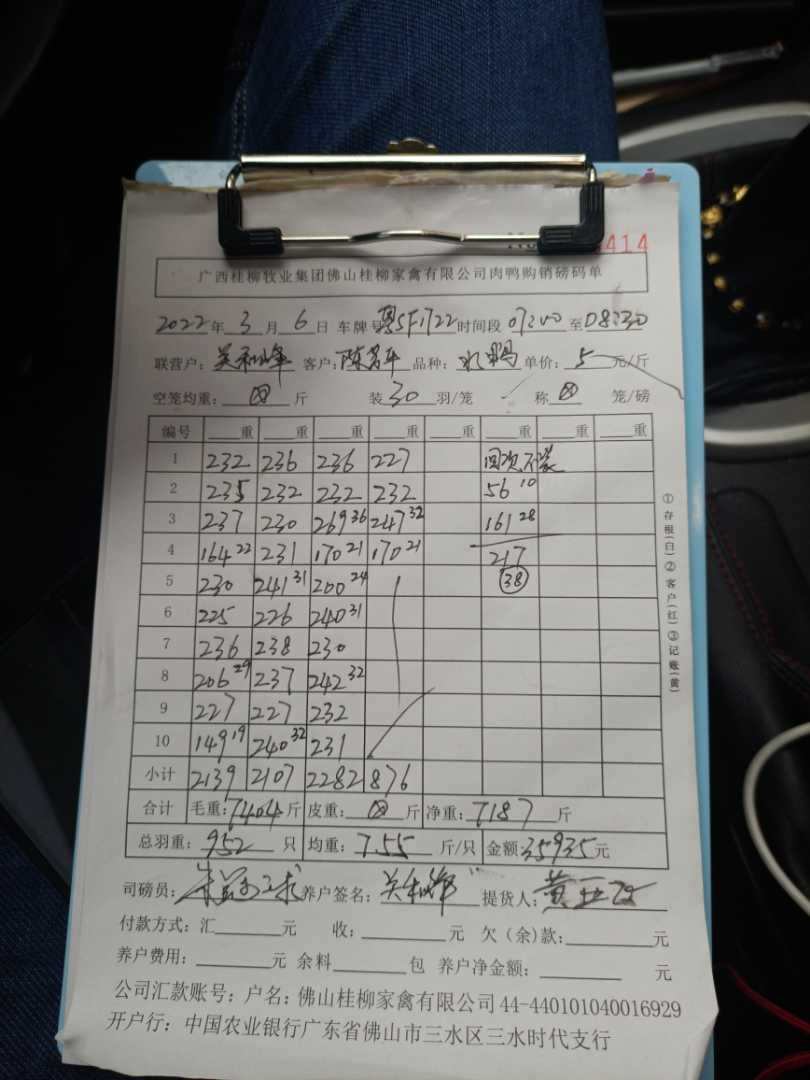 414
广西桂柳牧业集团佛山桂柳家禽有限公司肉鸭购销磅码单
2022年 3 月 6 日 车牌号 粤SF1722 时间段 07:00 至 08:30
联营户: 关和峰 客户: 品种: 水鸭 单价: 5 元/斤
空笼均重: 斤 装 30 羽/笼 称 笼/磅
编号 重 重 重 重 重 重 重 重
1 232 236 236 227 回次不装
2 235 232 232 232 56 10
3 237 230 269 36 247 32 161 28
4 164 22 231 170 21 170 21 217
5 230 241 31 200 24 38
6 225 226 240 31
7 236 238 230
8 206 29 237 242 32
9 227 227 232
10 149 19 240 32 231
小计 2139 2107 2282 876
合计 毛重: 7404 斤 皮重: 斤 净重: 7187 斤
总羽重: 952 只 均重: 7.55 斤/只 金额: 35935 元
司磅员: 养户签名: 关和峰 提货人:
付款方式: 汇 元 收: 元 欠(余)款: 元
养户费用: 元 余料 包 养户净金额: 元
公司汇款账号: 户名: 佛山桂柳家禽有限公司 44-440101040016929
开户行: 中国农业银行广东省佛山市三水区三水时代支行
①存根(白)②客户(红)③记账(黄)